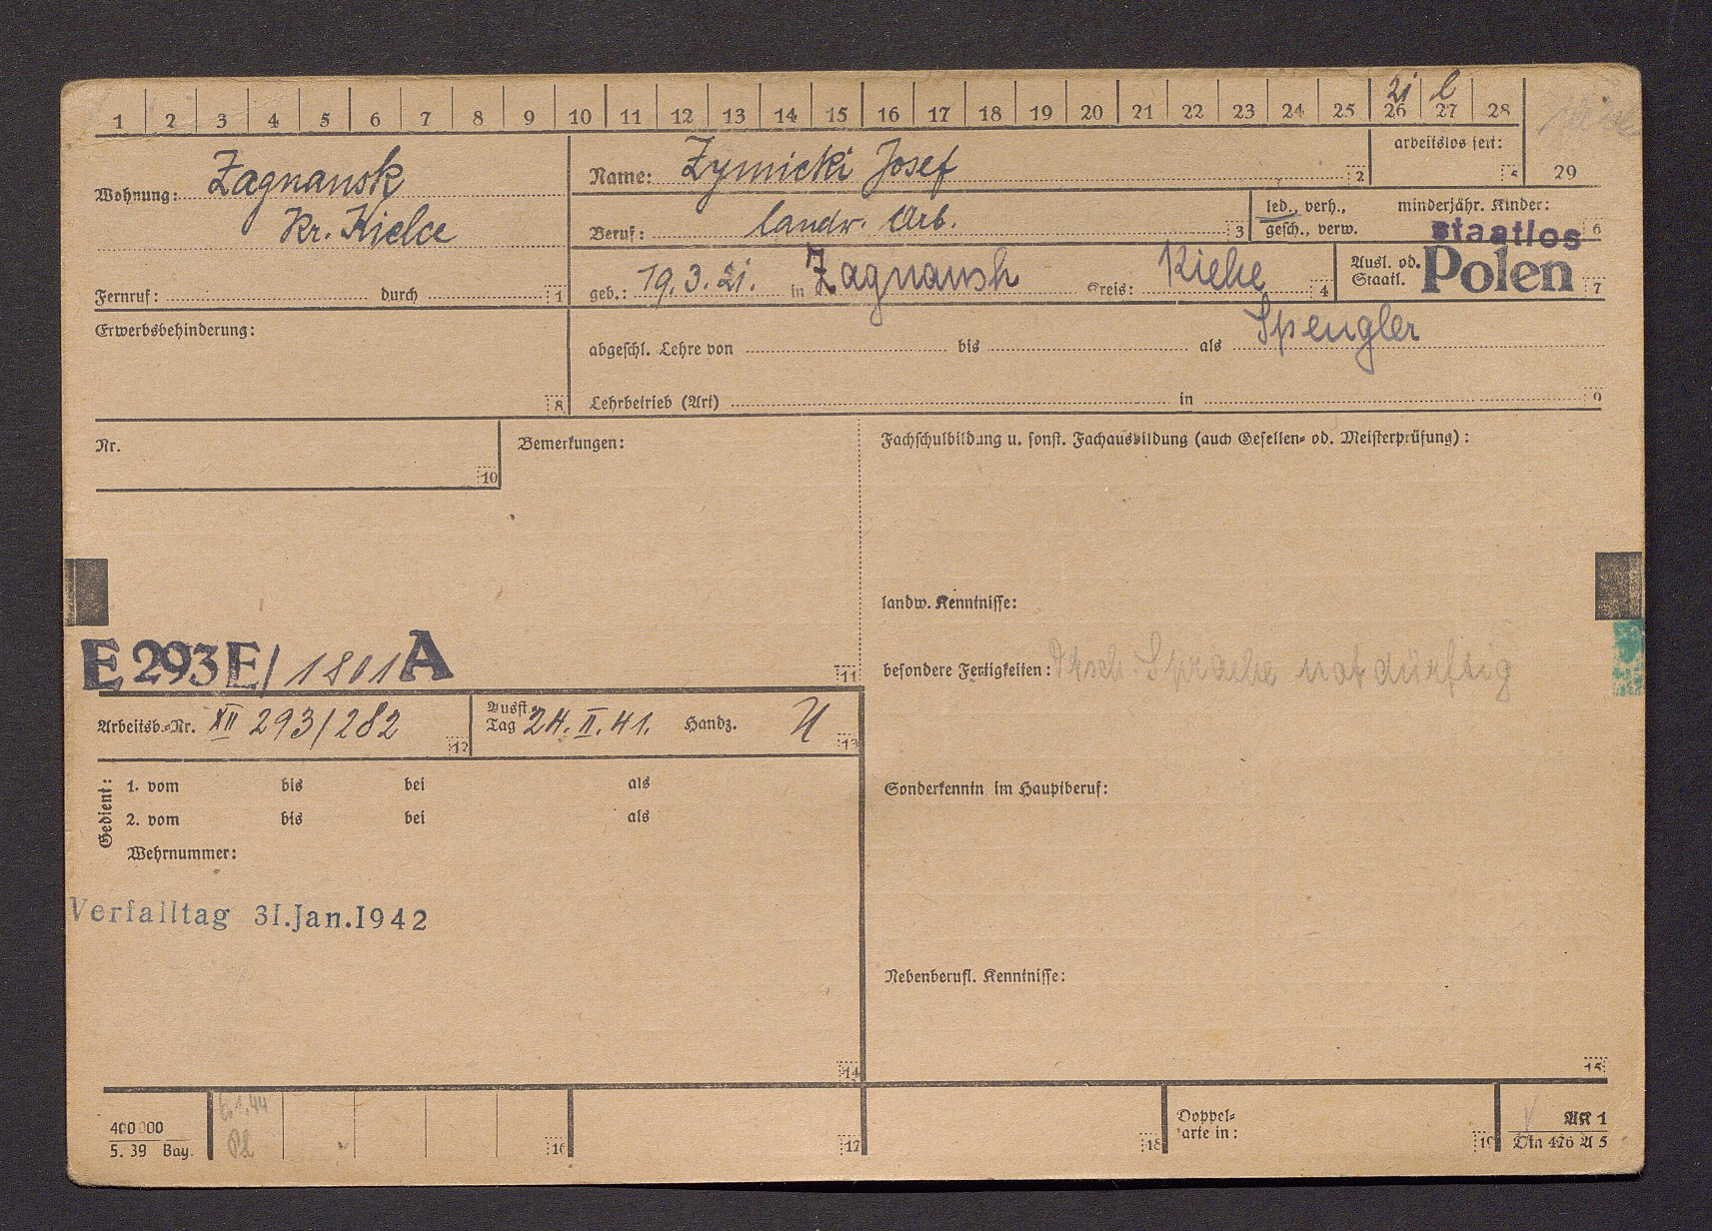 21 l
1 2 3 4 5 6 7 8 9 10 11 12 13 14 15 16 17 18 19 20 21 22 23 24 25 26 27 28
29
Wohnung: Zagnansk
Kr. Kielce
Fernruf: durch 1
Name: Zymicki Josef 2
arbeitslos seit: 5
Beruf: landw. Arb. 3
led., verh.,
gesch., verw.
minderjähr. Kinder:
6
geb.: 19.3.21. in Zagnansk Kreis: Kielce 4
Ausl. od.
Staatl.
staatlos
Polen 7
Erwerbsbehinderung:
8
abgeschl. Lehre von bis als Spengler
Lehrbetrieb (Art) in 9
Nr.
10
Bemerkungen:
E 293 E/ 1801 A
11
Fachschulbildung u. sonst. Fachausbildung (auch Gesellen- od. Meisterprüfung):
landw. Kenntnisse:
besondere Fertigkeiten: Dtsch. Sprache notdürftig
Sonderkenntn. im Hauptberuf:
Nebenberufl. Kenntnisse:
15
Arbeitsb.-Nr. XII 293/282 12
Ausst.
Tag 24.II.41. Handz. 13
Gedient:
1. vom bis bei als
2. vom bis bei als
Wehrnummer:
Verfalltag 31.Jan.1942
14
400 000
5. 39 Bay.
6.1.44
16
17
18
Doppel-
karte in:
19
AK 1
Din 476 A 5